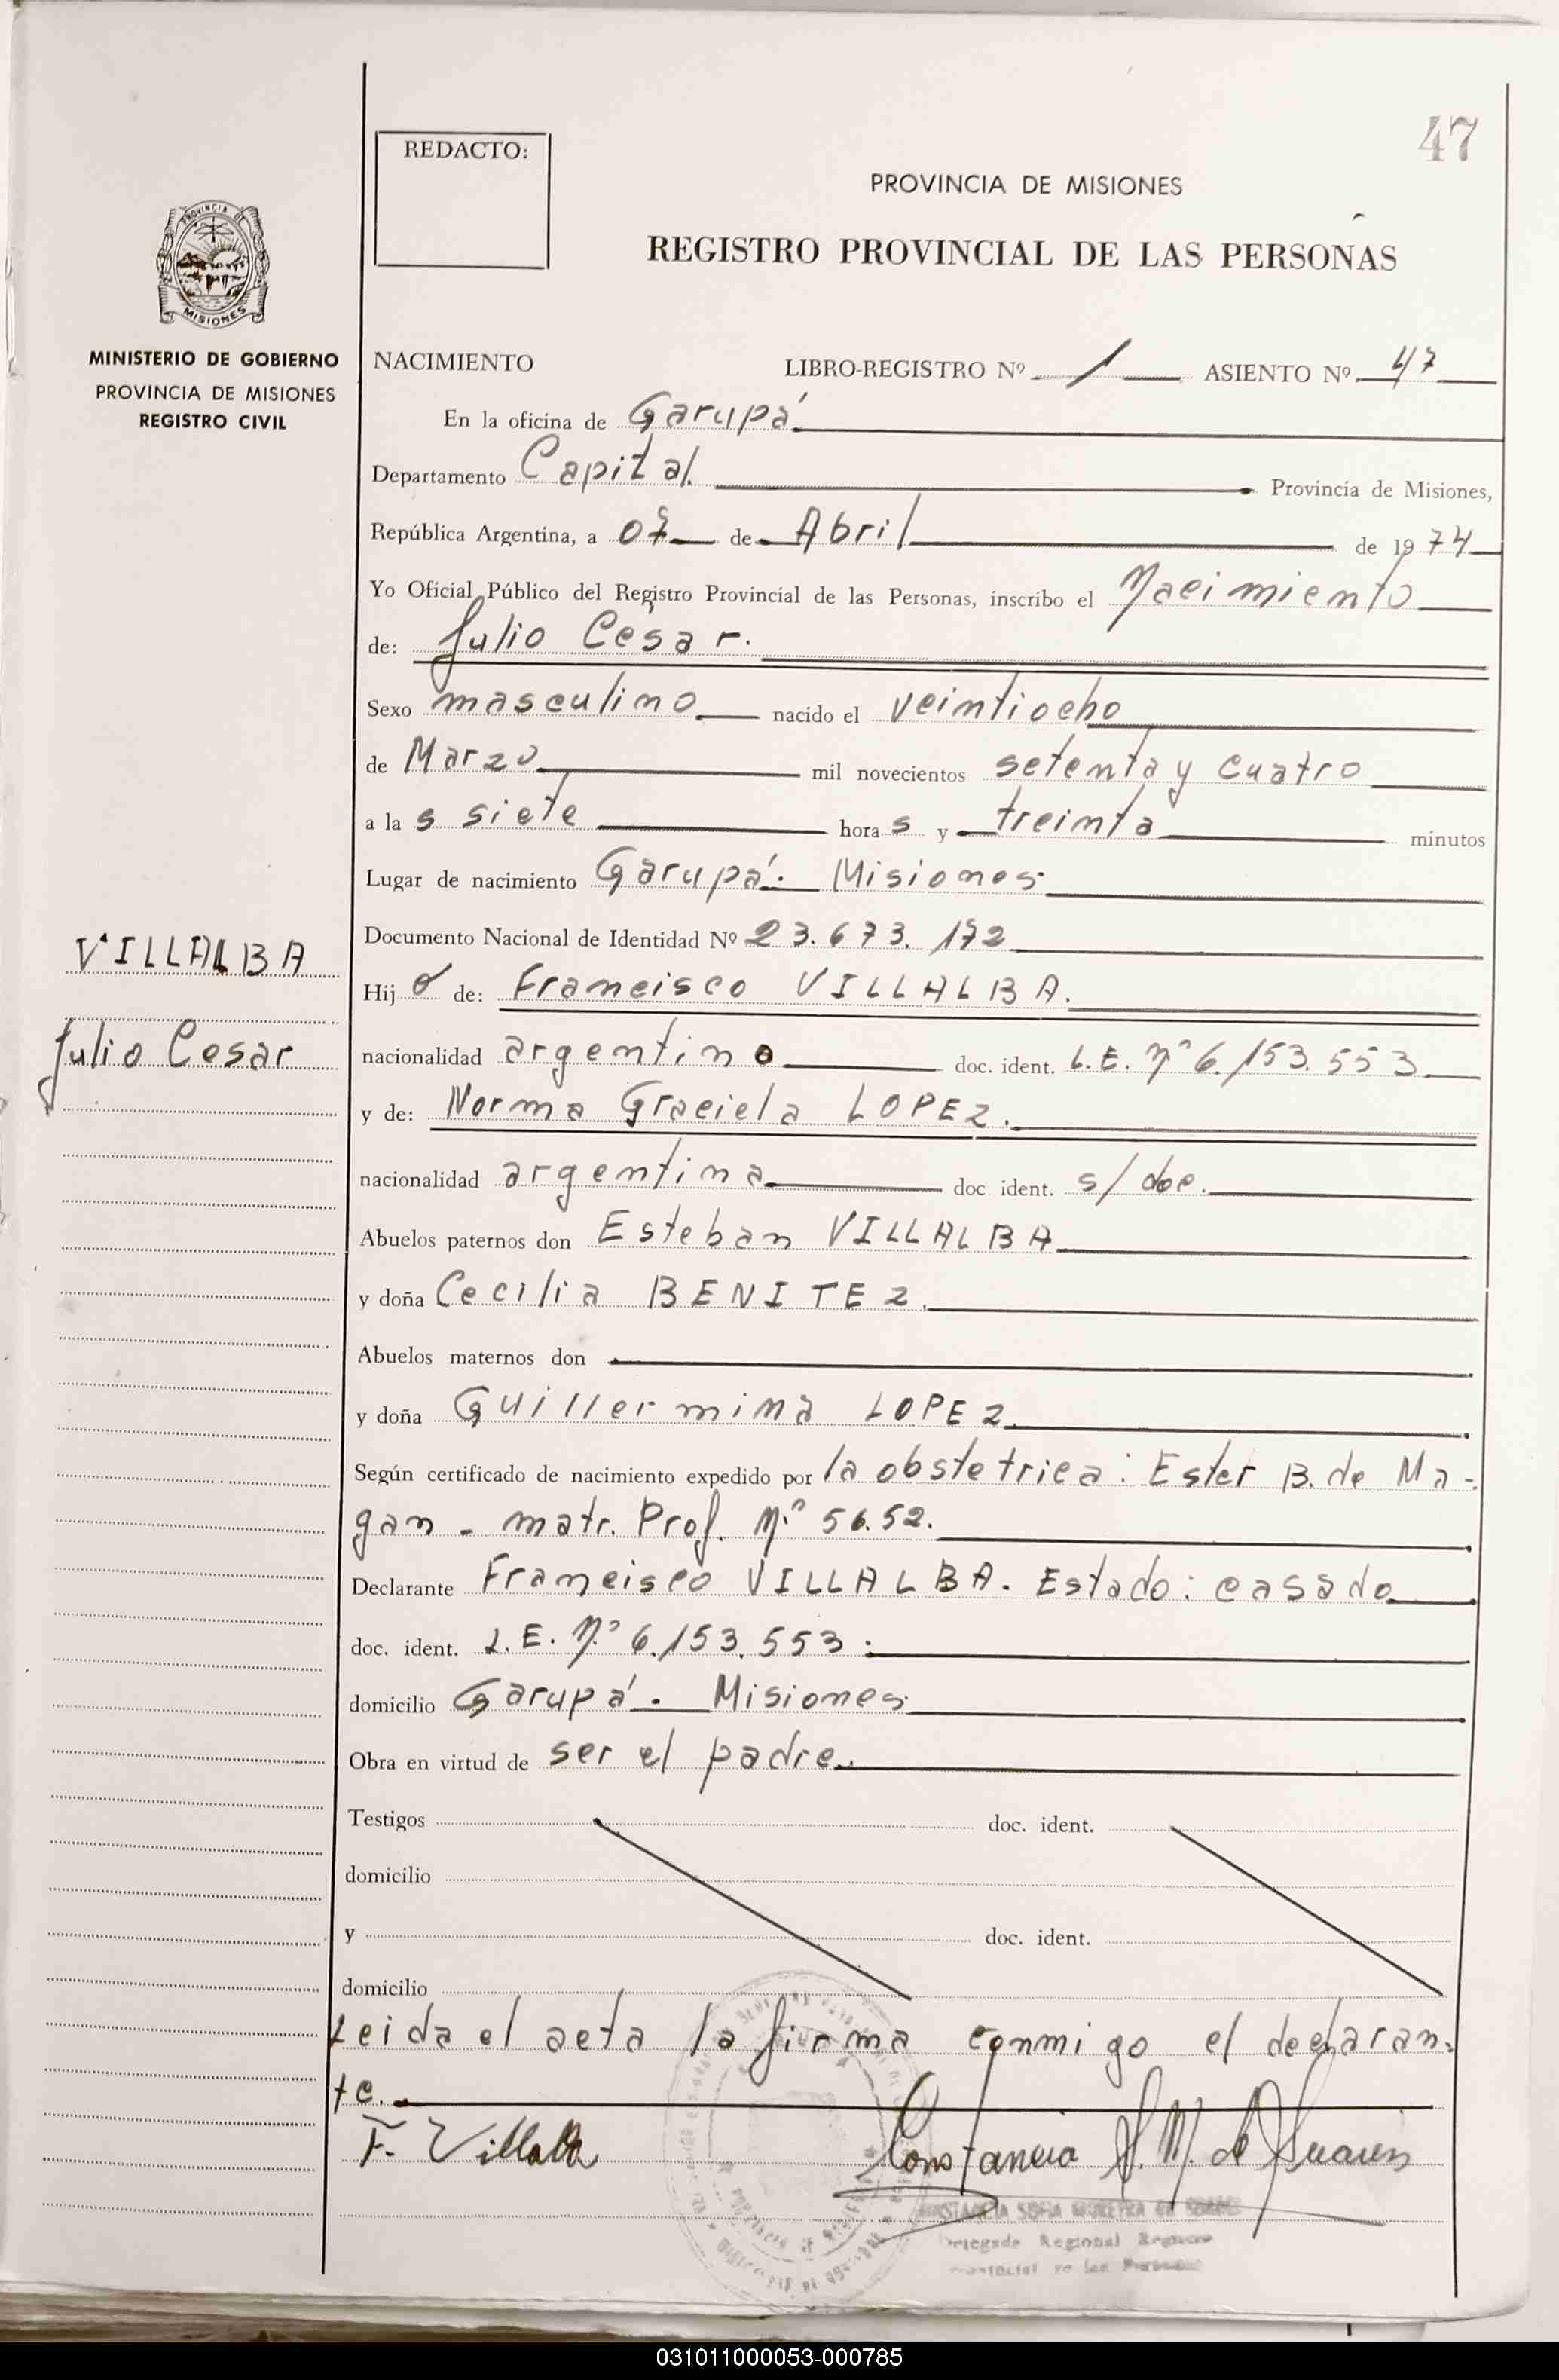 47
REDACTO:
PROVINCIA DE MISIONES
REGISTRO PROVINCIAL DE LAS PERSONAS
PROVINCIA DE
MISIONES
MINISTERIO DE GOBIERNO
PROVINCIA DE MISIONES
REGISTRO CIVIL
NACIMIENTO LIBRO-REGISTRO Nº 1 ASIENTO Nº 47
En la oficina de Garupá
Departamento Capital. Provincia de Misiones,
República Argentina, a 07 de Abril de 1974
Yo Oficial Público del Registro Provincial de las Personas, inscribo el Nacimiento
de: Julio Cesar.
Sexo masculino nacido el veintiocho
de Marzo mil novecientos setenta y cuatro
a las siete horas y treinta minutos
Lugar de nacimiento Garupá. Misiones
Documento Nacional de Identidad Nº 23.673.172
VILLALBA
Julio Cesar
Hijo de: Francisco VILLALBA.
nacionalidad argentino doc. ident. L.E. Nº 6.153.553
y de: Norma Graciela LOPEZ.
nacionalidad argentina doc. ident. s/doc.
Abuelos paternos don Esteban VILLALBA
y doña Cecilia BENITEZ.
Abuelos maternos don
y doña Guillermina LOPEZ.
Según certificado de nacimiento expedido por la obstetrica: Ester B. de Ma-
gan - matr. Prof. Nº 56.52.
Declarante Francisco VILLALBA. Estado: casado
doc. ident. L.E. Nº 6.153.553:
domicilio Garupá. Misiones
Obra en virtud de ser el padre.
Testigos doc. ident.
domicilio
y doc. ident.
domicilio
Leida el acta la firma conmigo el declaran-
te.
F. Villalba Constancia S. M. de Suarez
Delegada Regional Registro
Provincial de las Personas
031011000053-000785